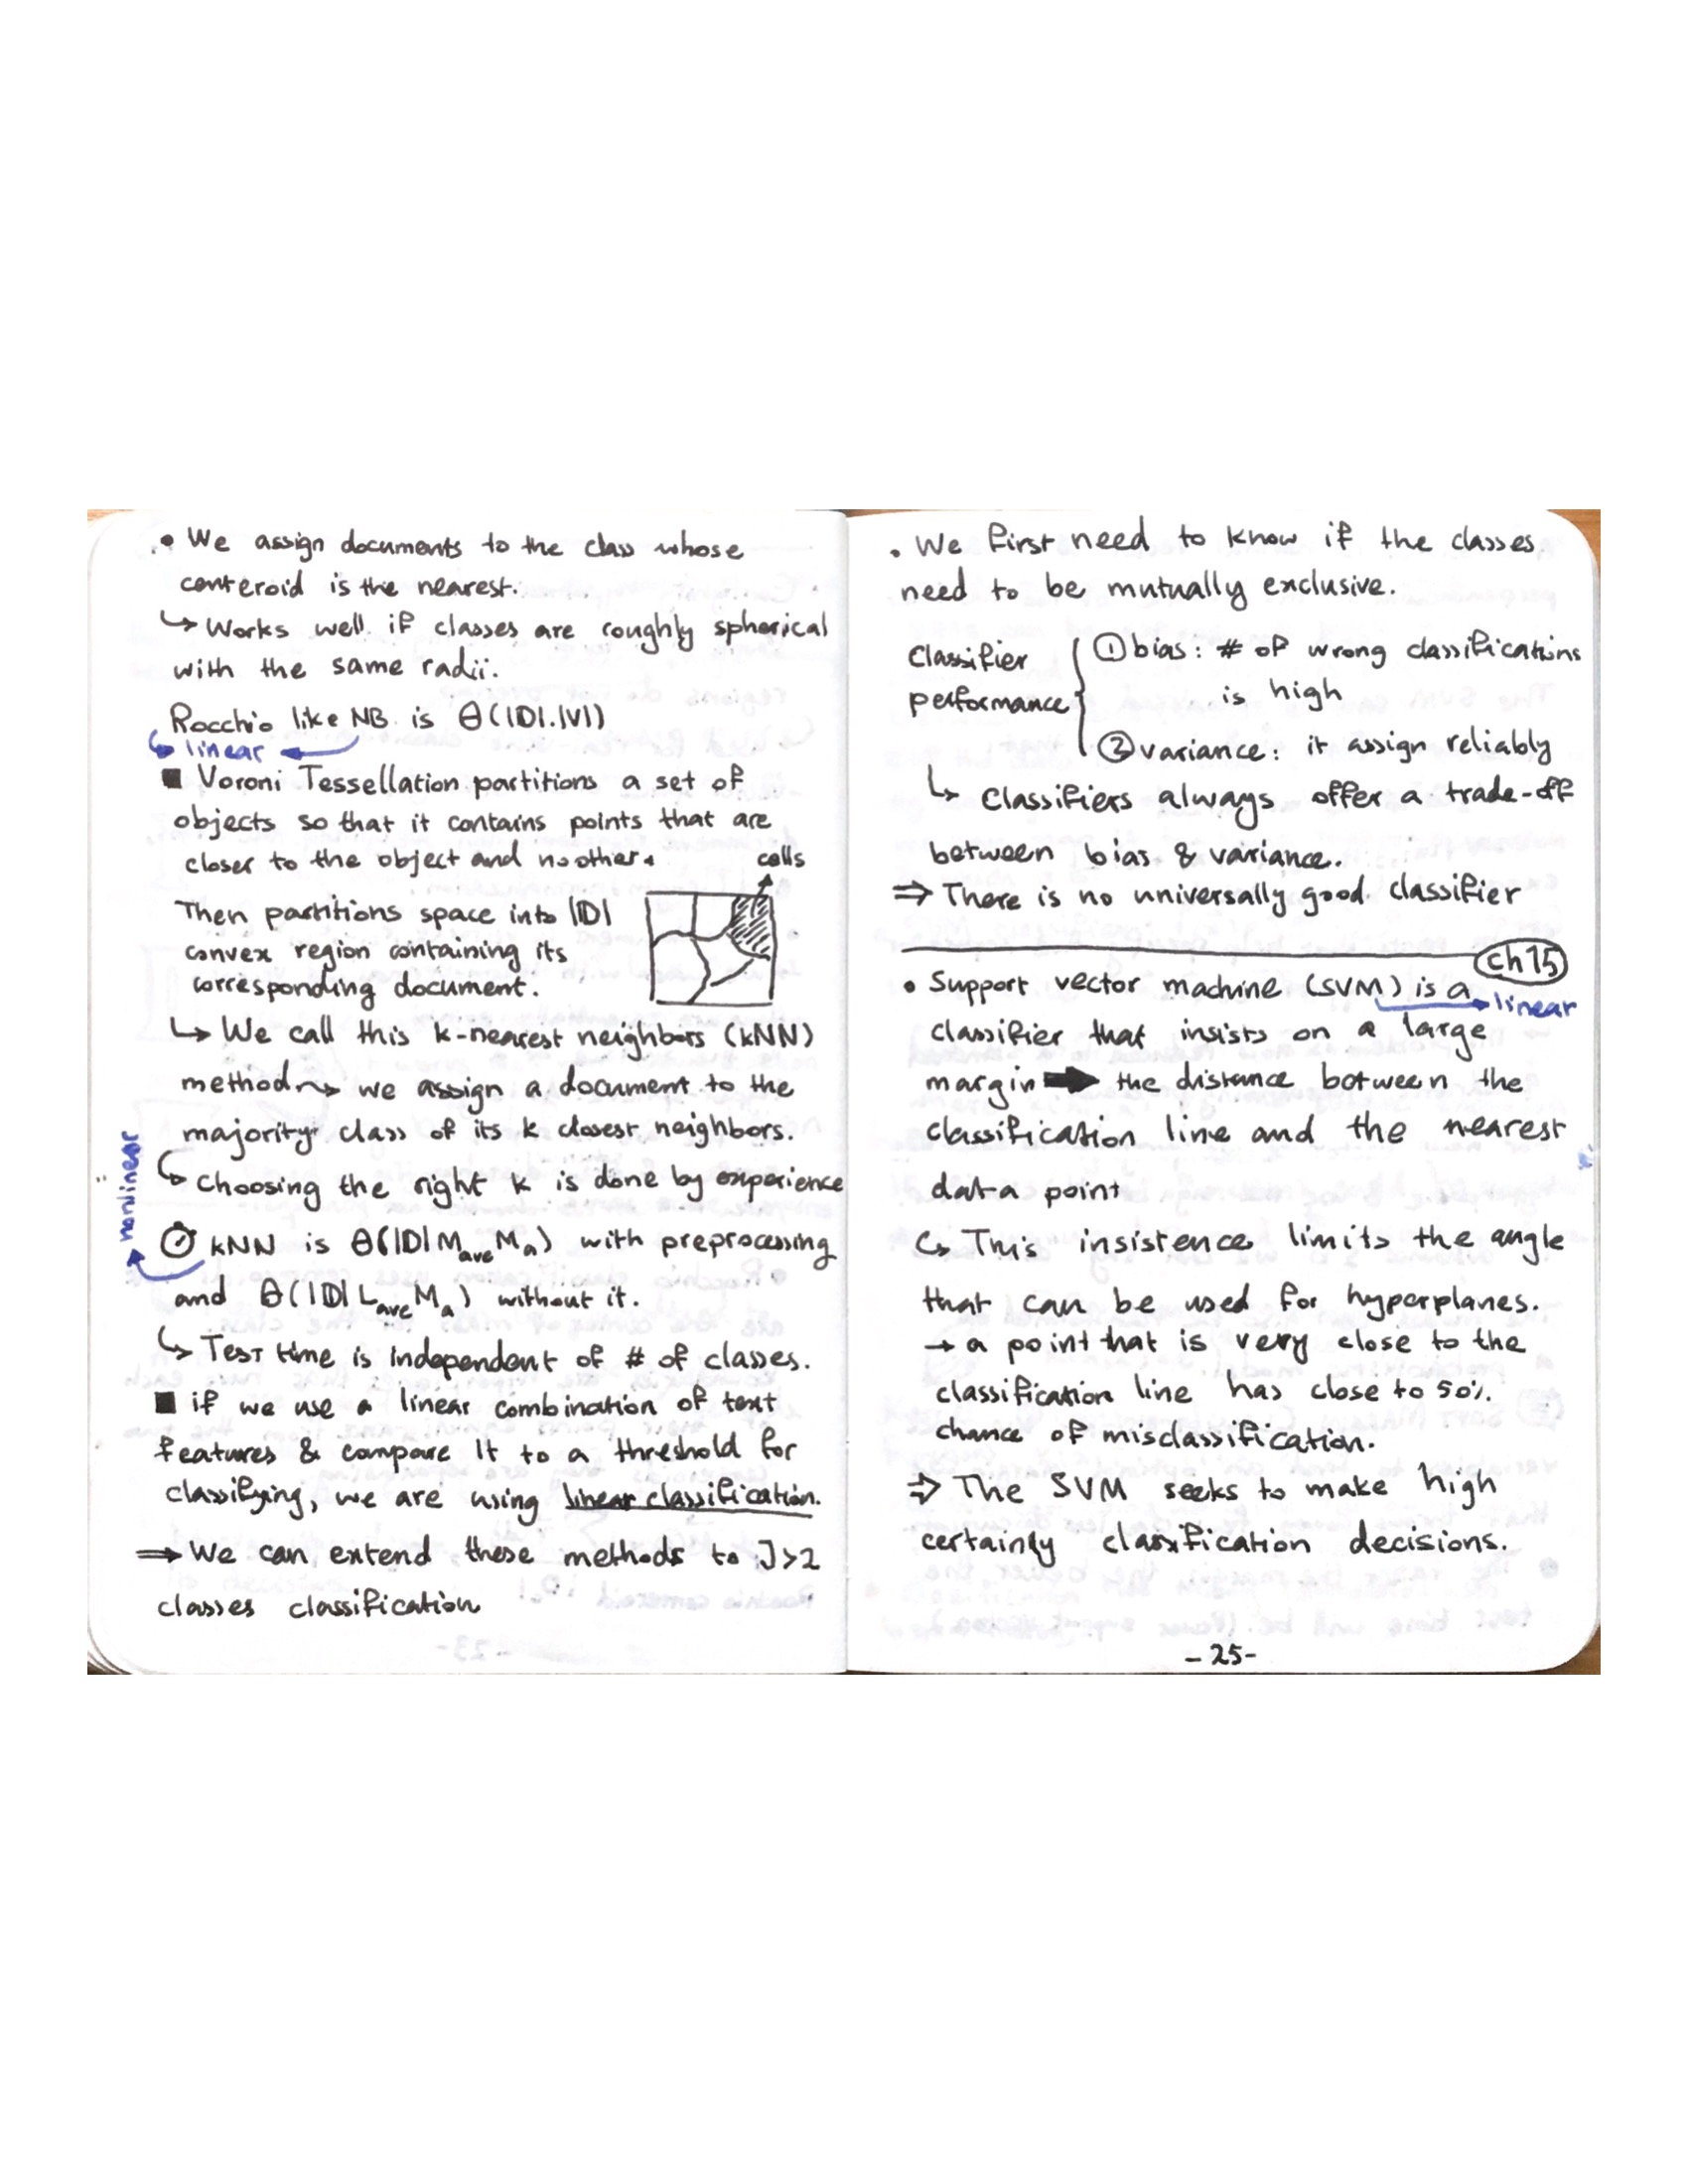 • We assign documents to the class whose
centeroid is the nearest.
↳ Works well if classes are roughly spherical
with the same radii.
Rocchio like NB is Θ(|D|.|V|)
↳ linear ←
■ Voroni Tessellation partitions a set of
objects so that it contains points that are
closer to the object and no other.
cells
Then partitions space into |D|
convex region containing its
corresponding document.
↳ We call this k-nearest neighbors (kNN)
method ⇝ we assign a document to the
majority class of its k closest neighbors.
↳ Choosing the right k is done by experience
nonlinear
kNN is Θ(|D| M_ave M_a) with preprocessing
and Θ(|D| L_ave M_a) without it.
↳ Test time is independent of # of classes.
■ if we use a linear combination of text
features & compare It to a threshold for
classifying, we are using linear classification.
⇒ We can extend these methods to J>2
classes classification
• We first need to know if the classes
need to be mutually exclusive.
Classifier
performance
① bias: # of wrong classifications
is high
② variance: it assign reliably
↳ Classifiers always offer a trade-off
between bias & variance.
⇒ There is no universally good classifier
ch 15
• Support vector machine (SVM) is a
→ linear
classifier that insists on a large
margin ➡ the distance between the
classification line and the nearest
data point
↳ This insistence limits the angle
that can be used for hyperplanes.
→ a point that is very close to the
classification line has close to 50%
chance of misclassification.
⇒ The SVM seeks to make high
certainly classification decisions.
-25-